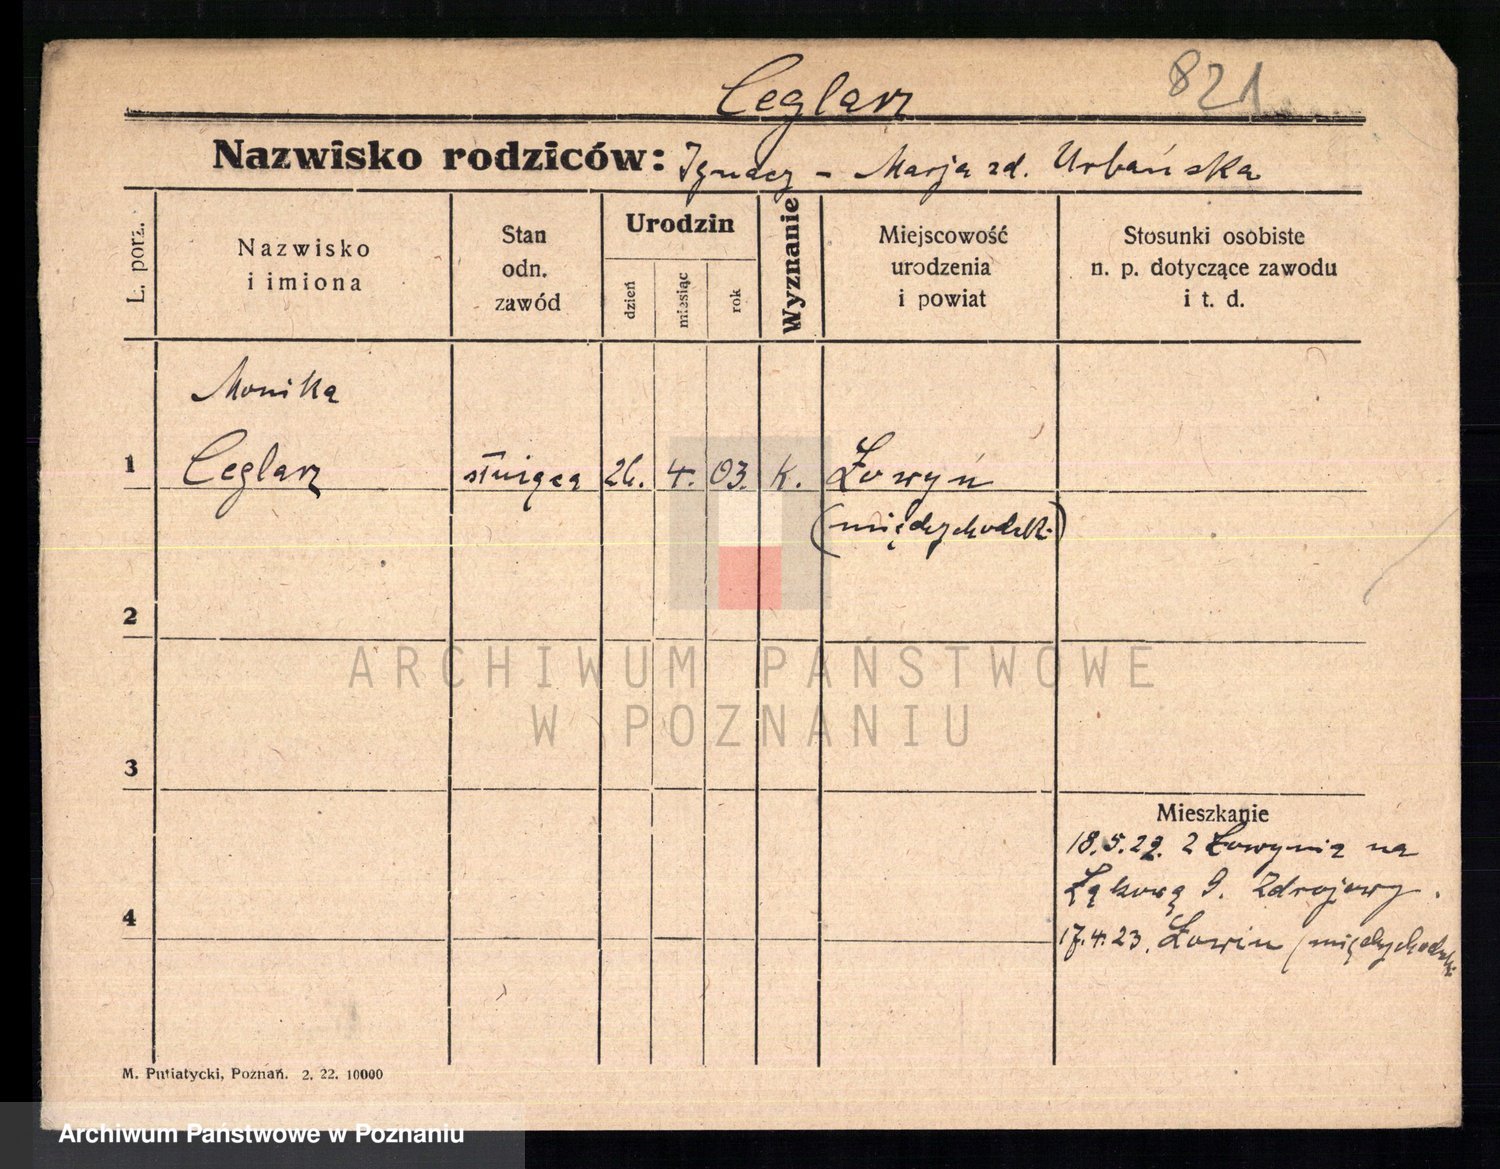 Ceglarz 821
Nazwisko rodziców: Ignacy - Marja zd. Urbańska
L. porz.
Nazwisko
i imiona
Stan
odn.
zawód
Urodzin
dzień
miesiąc
rok
Wyznanie
Miejscowość
urodzenia
i powiat
Stosunki osobiste
n. p. dotyczące zawodu
i t. d.
Monika
1 Ceglarz służąca 26. 4. 03. k. Łowyń
(międzychodzk.)
2
3
4
Mieszkanie
18.5.22. z Łowynia na
Łąkową 9. Zdrojowy.
17.4.23. Łowin (międzychodzk.
ARCHIWUM PAŃSTWOWE
W POZNANIU
M. Putiatycki, Poznań. 2. 22. 10000
Archiwum Państwowe w Poznaniu